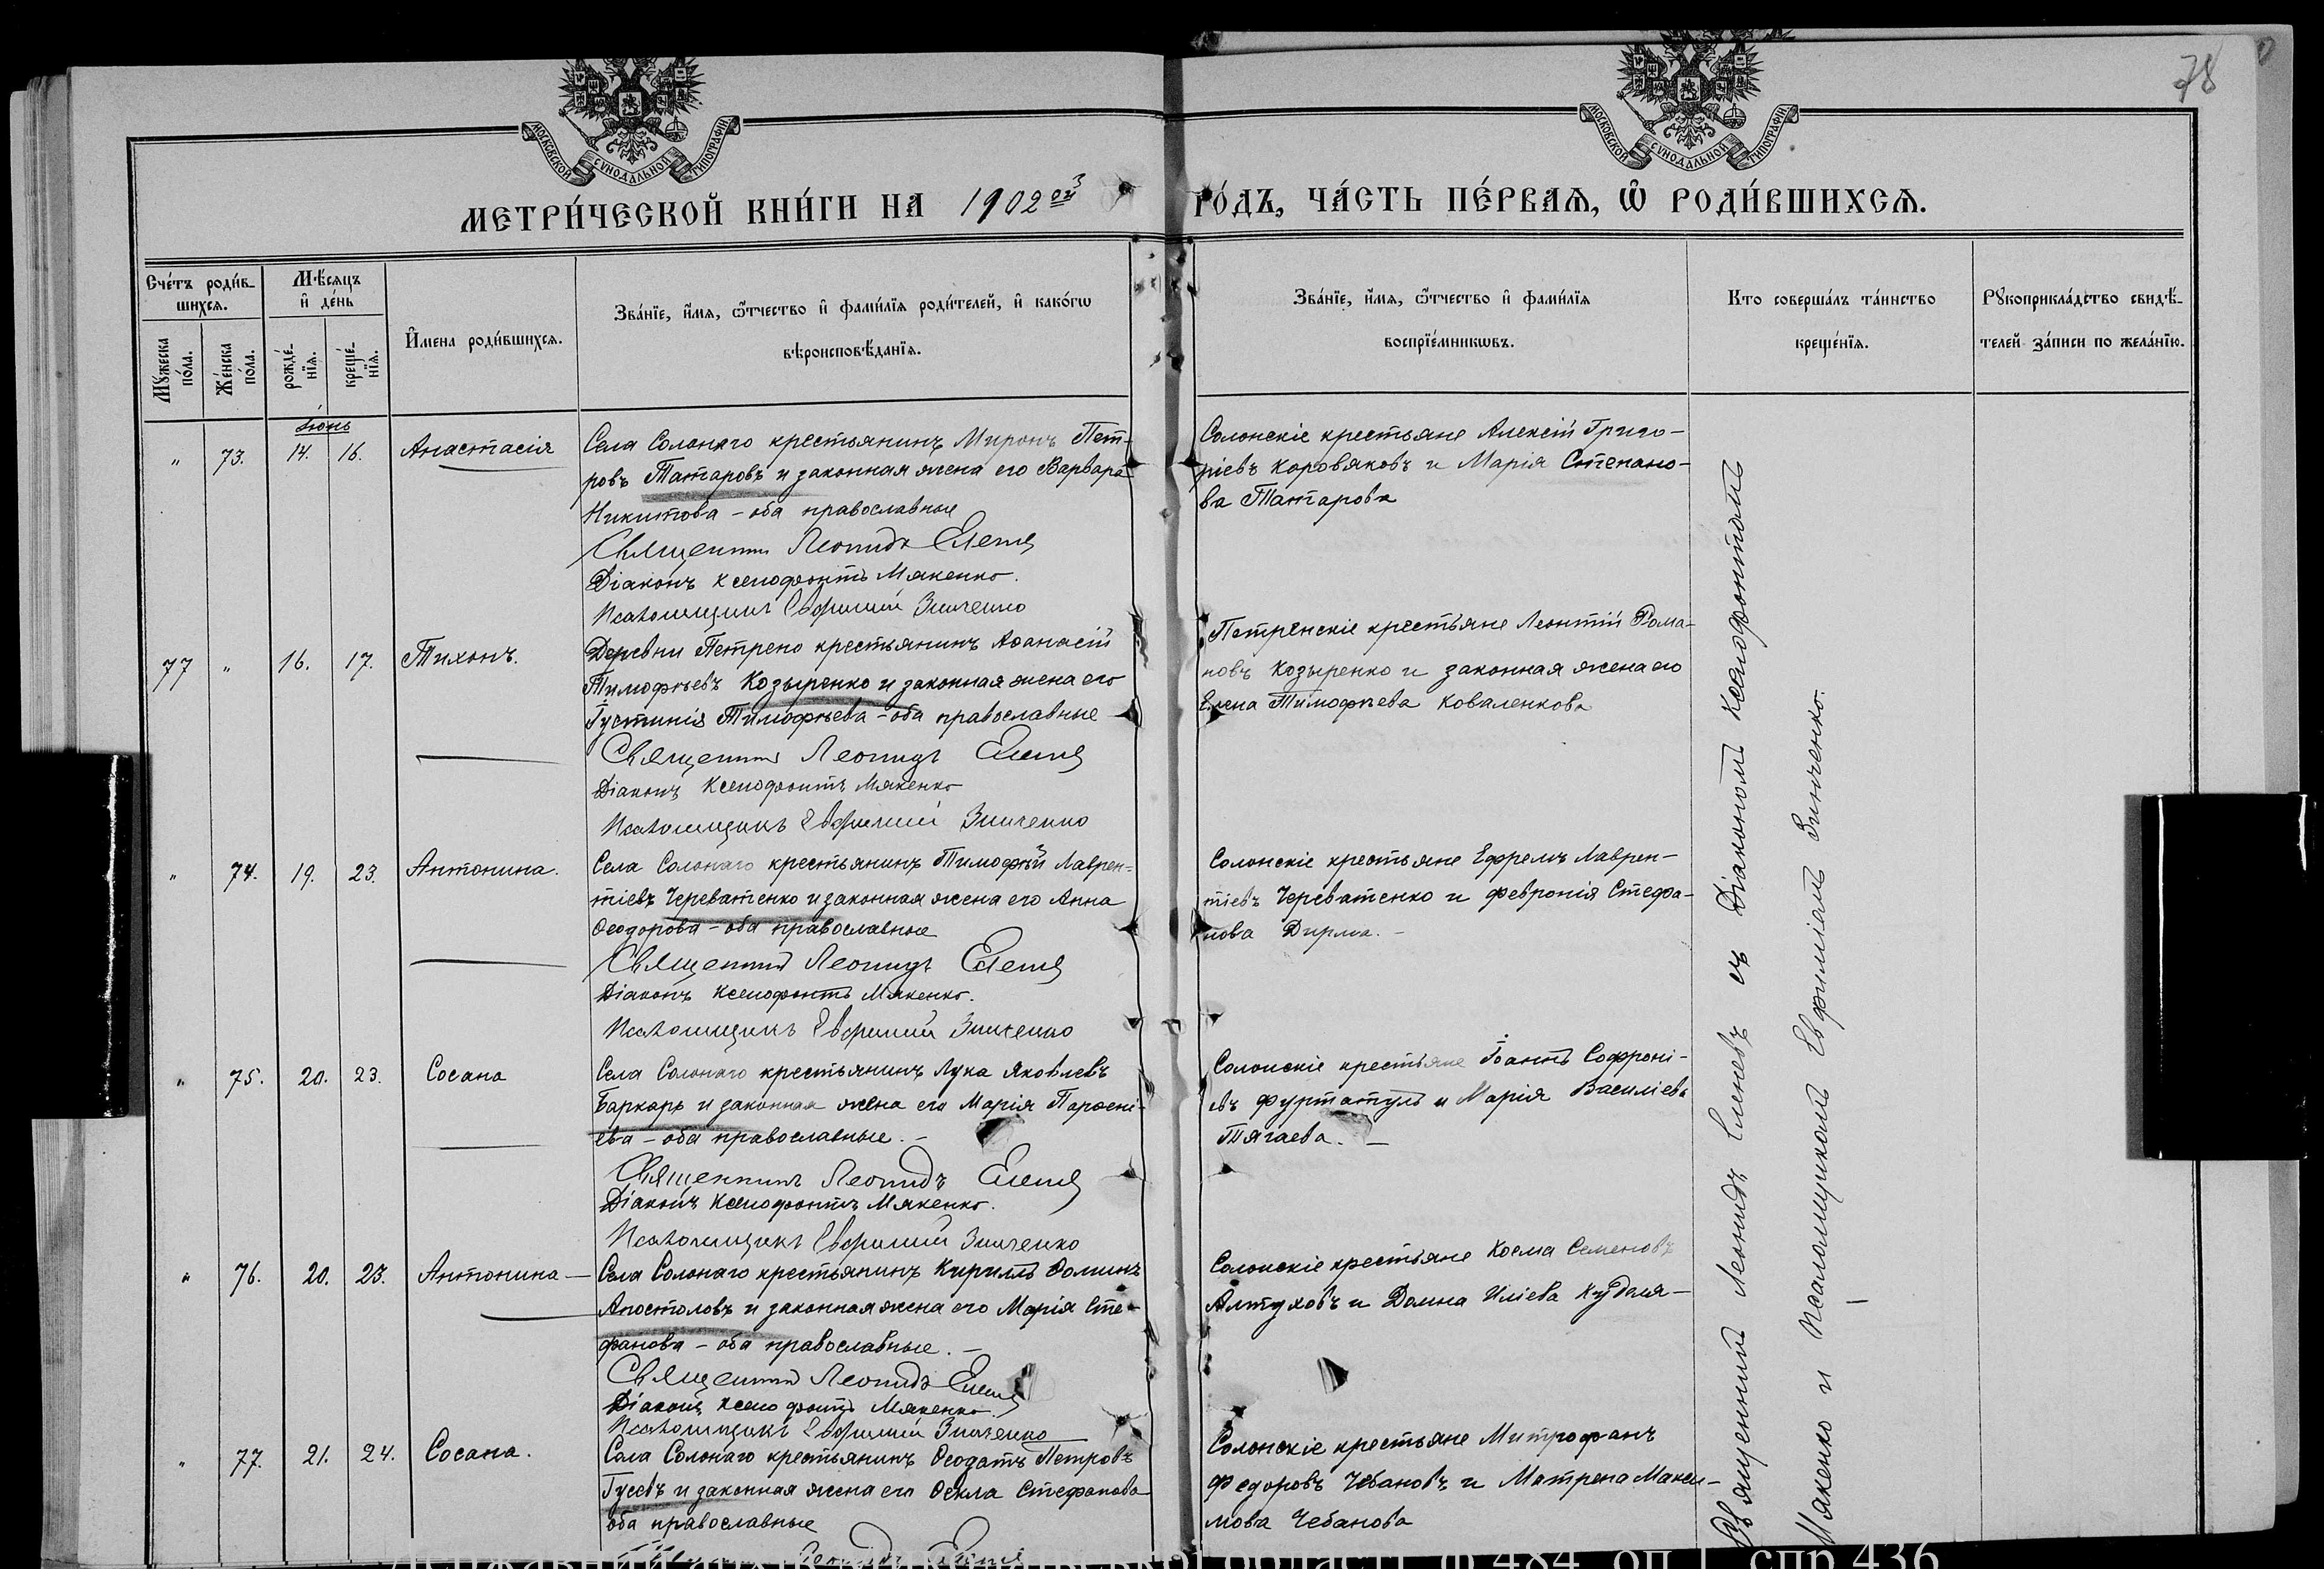 78
МОСКОВСКОЙ СѴНОДАЛЬНОЙ ТИПОГРАФІИ
МОСКОВСКОЙ СѴНОДАЛЬНОЙ ТИПОГРАФІИ
МЕТРИ́ЧЕСКОЙ КНИ́ГИ НА 1902 ой
РО́ДЪ, ЧА́СТЬ ПЕ́РВАЯ, Ѡ РОДИ́ВШИХСЯ.
Сче́тъ роди́в-
шихся.
Мꙋжеска по́ла.
Же́нска по́ла.
Мѣ́сяцъ
и҆ де́нь
рожде́-нїя.
креще́-нїя.
И҆мена роди́вшихся.
Зва́нїе, и҆́мя, ѻ҆́тчество и҆ фами́лїя роди́телей, и҆ како́гѡ
вѣроисповѣ́данїя.
Зва́нїе, и҆́мя, ѻ҆́тчество и҆ фами́лїя
воспрїе́мникѡвъ.
Кто соверша́лъ та́инство
креще́нїя.
Рꙋкоприкла́дство свидѣ́-
телей за́писи по жела́нїю.
Іюнь
" 73. 14. 16. Анастасія
Села Солонаго крестьянинъ Миронъ Пет-
ровъ Татаровъ и законная жена его Варвара
Никитова - оба православные
Священникъ Леонидъ Еленевъ
Діаконъ Ксенофонтъ Мякенко.
Псаломщикъ Евфимий Зинченко
Солонскіе крестьяне Алексій Григо-
ріевъ Коровяковъ и Марія Степано-
ва Татарова
77 " 16. 17. Тихонъ.
Деревни Петрено крестьянинъ Аѳанасій
Тимофѣевъ Козыренко и законная жена его
Іустинія Тимофѣева - оба православные
Священникъ Леонидъ Еленевъ
Діаконъ Ксенофонтъ Мякенко
Псаломщикъ Евфимий Зинченко
Петренскіе крестьяне Леонтій Рома-
новъ Козыренко и законная жена его
Елена Тимофѣева Коваленкова
" 74. 19. 23. Антонина.
Села Солонаго крестьянинъ Тимофѣй Лаврен-
тіевъ Череватенко и законная жена его Анна
Ѳеодорова - оба православные
Священникъ Леонидъ Еленевъ
Діаконъ Ксенофонтъ Мякенко.
Псаломщикъ Евфимий Зинченко
Солонскіе крестьяне Ефремъ Лаврен-
тіевъ Череватенко и Февронія Стефа-
нова Дирма. -
" 75. 20. 23. Сосана
Села Солонаго крестьянинъ Лука Яковлевъ
Баркарь и законная жена его Марія Парѳені-
ева - оба православные. -
Священникъ Леонидъ Еленевъ
Діаконъ Ксенофонтъ Мякенко.
Псаломщикъ Евфимий Зинченко
Солонскіе крестьяне Іоаннъ Софроні-
евъ Фуртатулъ и Марія Василіева
Тягаева. -
" 76. 20. 23. Антонина -
Села Солонаго крестьянинъ Кириллъ Ѳоминъ
Апостоловъ и законная жена его Марія Сте-
фанова - оба православные. -
Священникъ Леонидъ Еленевъ
Діаконъ Ксенофонтъ Мякенко.
Псаломщикъ Евфимий Зинченко
Солонскіе крестьяне Косма Семеновъ
Алтуховъ и Домна Иліева Кудоля -
" 77. 21. 24. Сосана.
Села Солонаго крестьянинъ Ѳеодотъ Петровъ
Гусевъ и законная жена его Ѳекла Стефанова
оба православные
Солонскіе крестьяне Митрофанъ
Федоровъ Чебановъ и Матрена Макси-
мова Чебанова
Священникъ Леонидъ Еленевъ съ Діакономъ Ксенофонтомъ
Мякенко и Псаломщикомъ Евфиміемъ Зинченко.
Державний архів Миколаївської області ф.484, оп.1, спр.436